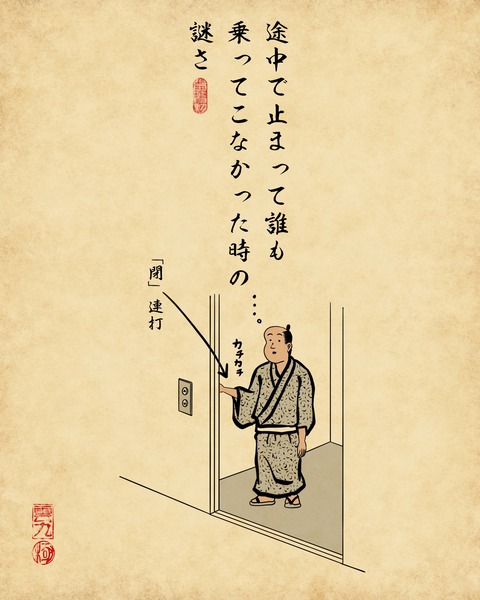 途中で止まって誰も
乗ってこなかった時の
謎さ
…。
「閉」連打
カチカチ